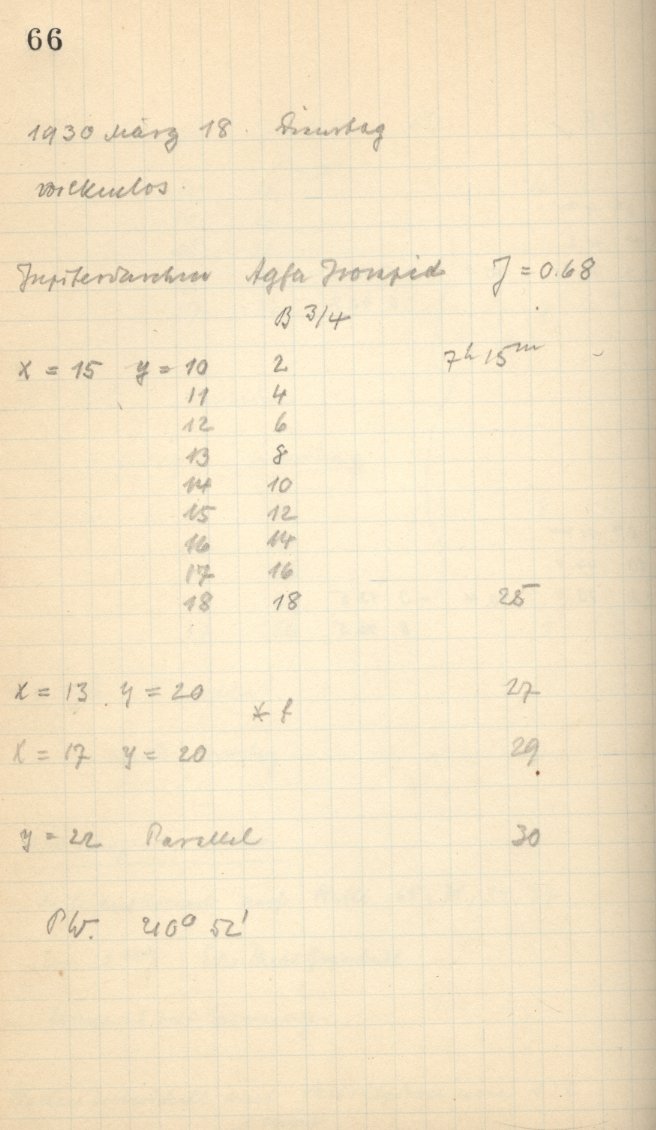 66
1930 März 18. Dienstag
wolkenlos.
Jupiteraufnahmen Agfa Isorapid J = 0.68
B 3/4
x = 15 y = 10 2 7h 15m
11 4
12 6
13 8
14 10
15 12
16 14
17 16
18 18 25
x = 13 y = 20 27
* f
x = 17 y = 20 29
y = 22 Parallel 30
PW. 210° 52'